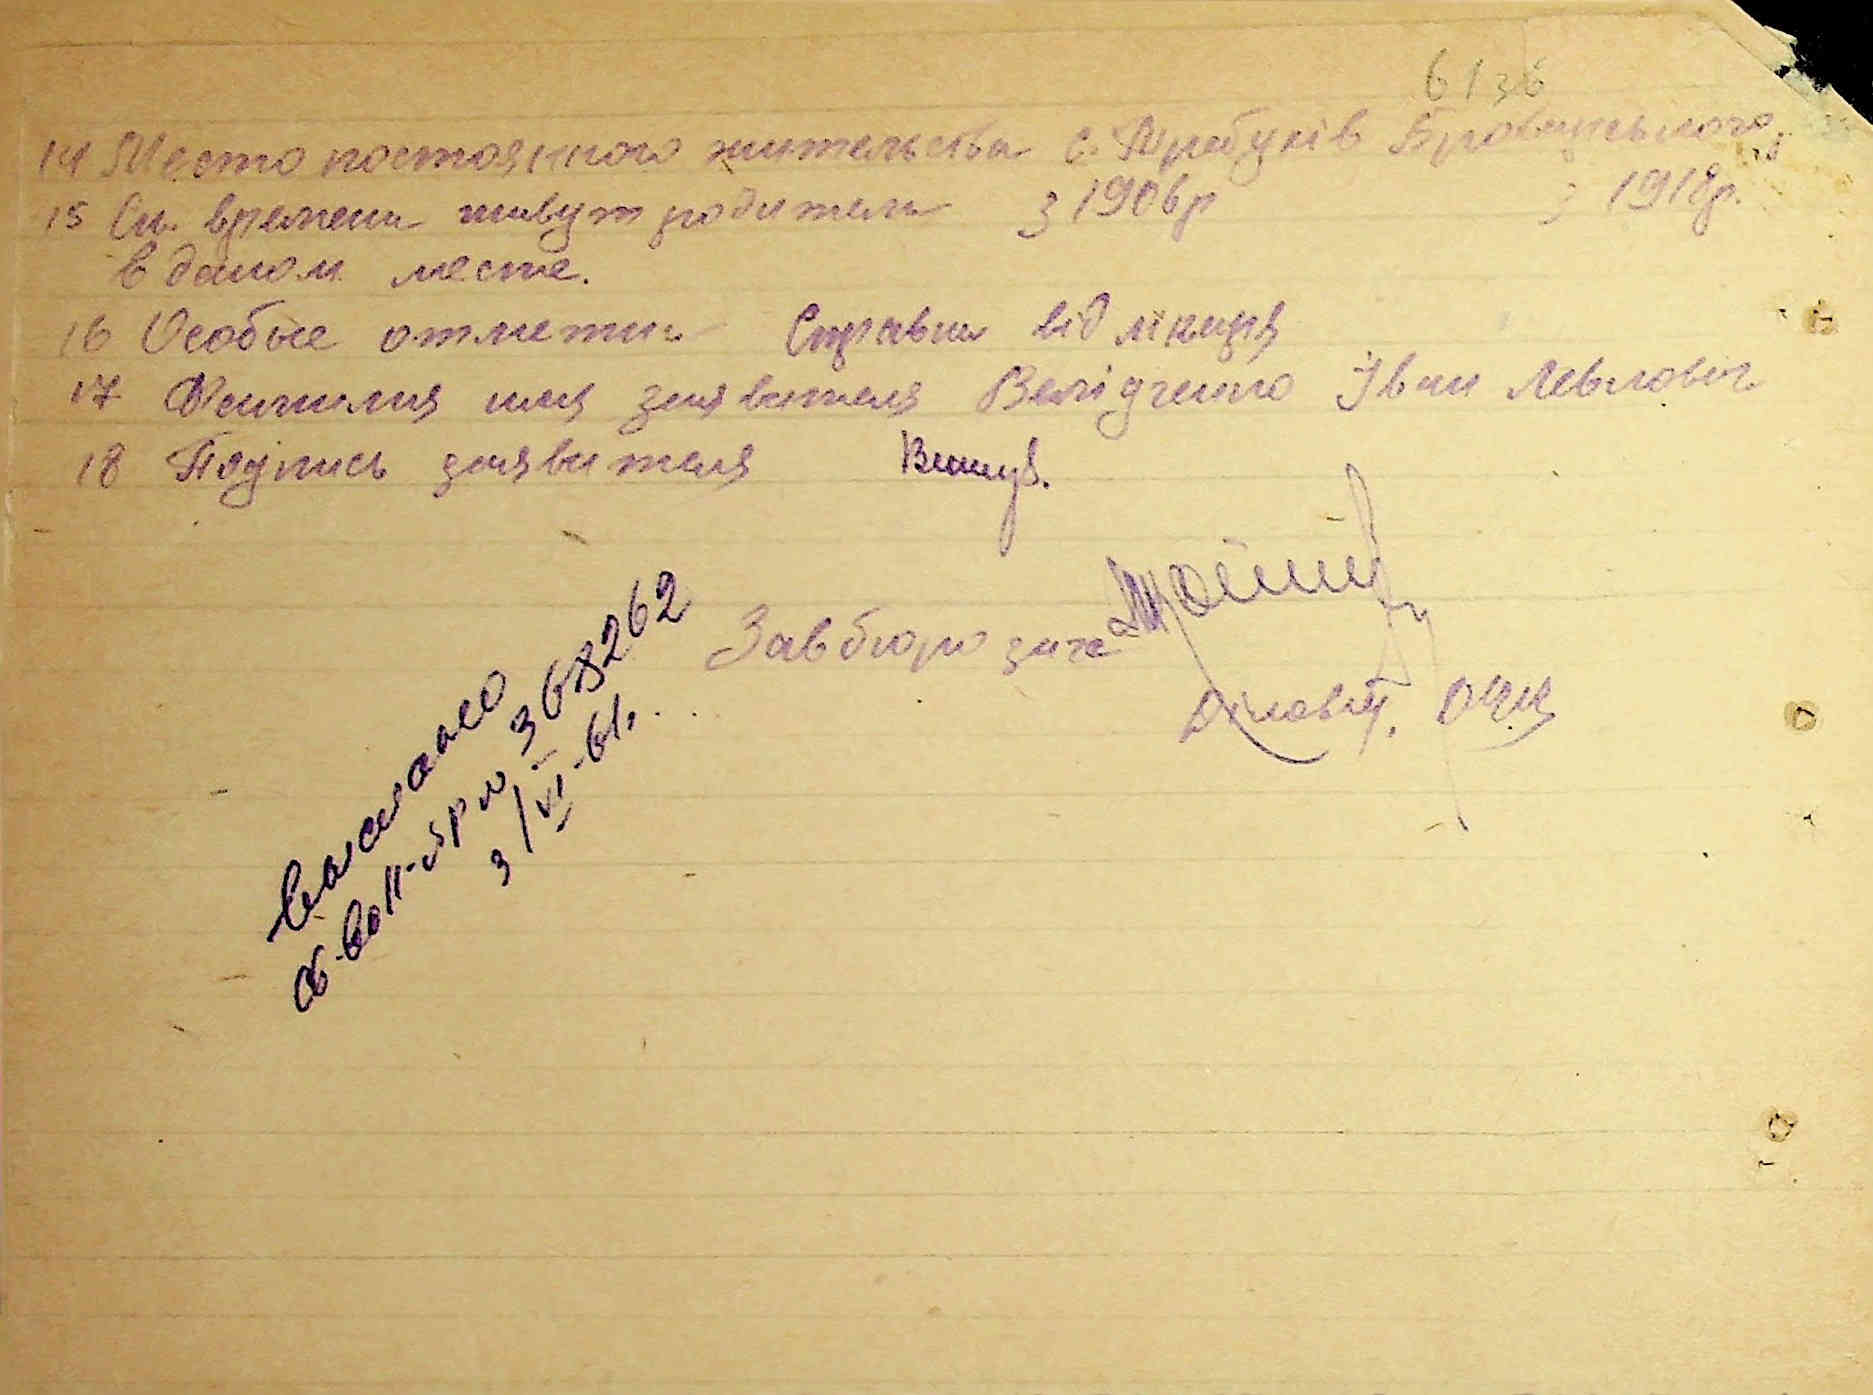 6136
14 Место постоянного жительства с. Требухів Броварського р
15 Ск. времени живут родители з 1906р з 1918р.
в даном месте.
16 Особые отметки Справка від лікаря
17 Фамилия имя заявителя Іван Павлович
18 Подпись заявителя
Зав бюро загса
Выслано
св-во II-
368262
3/VI-61.